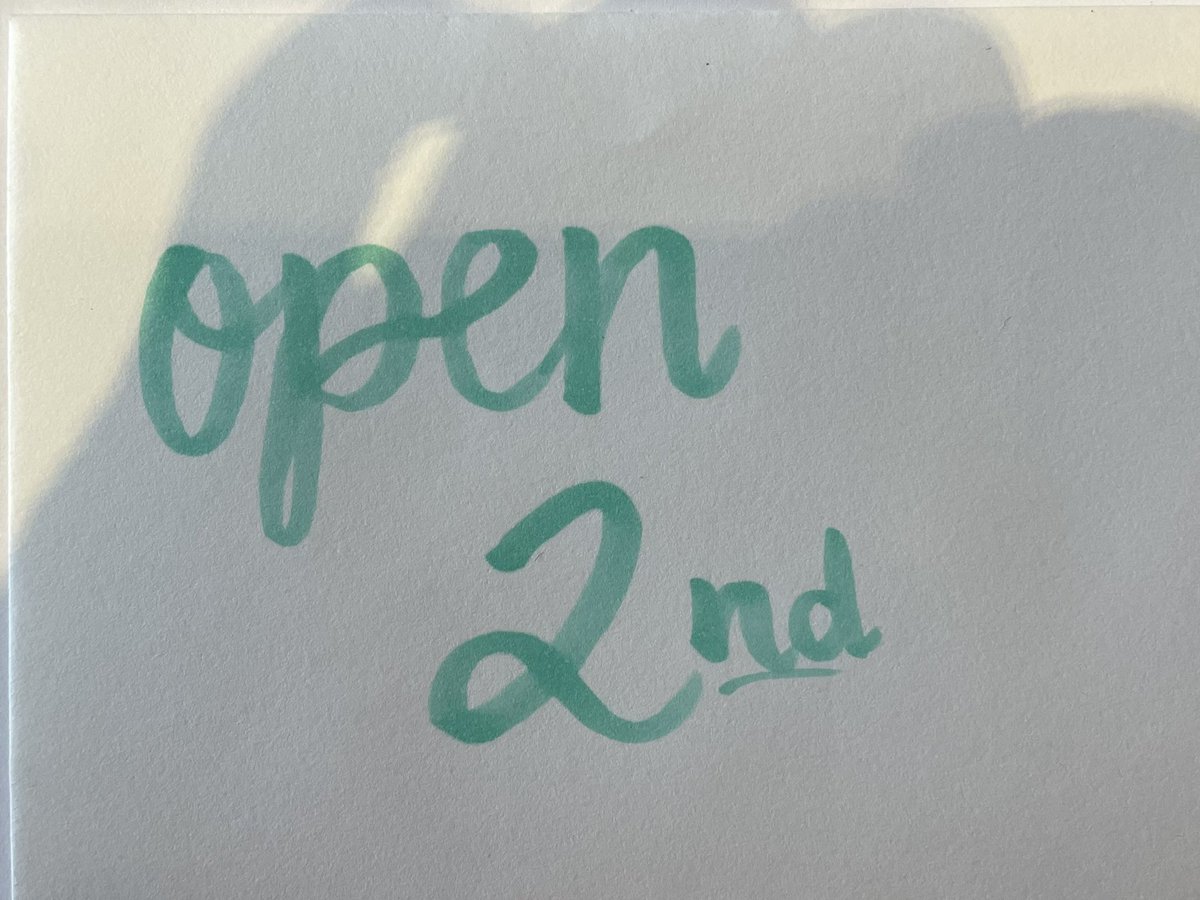 open
2nd